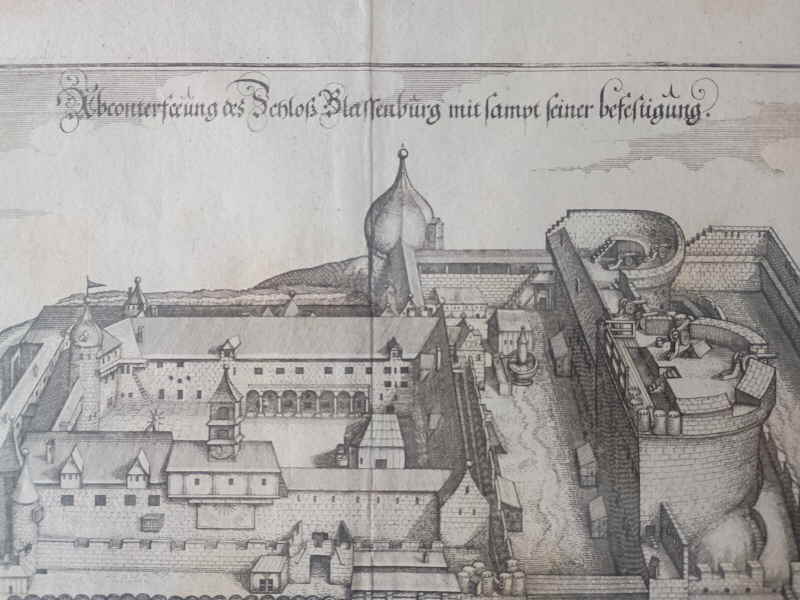 Abconterfeeung des Schloß Blassenburg mit sampt seiner befestigung.